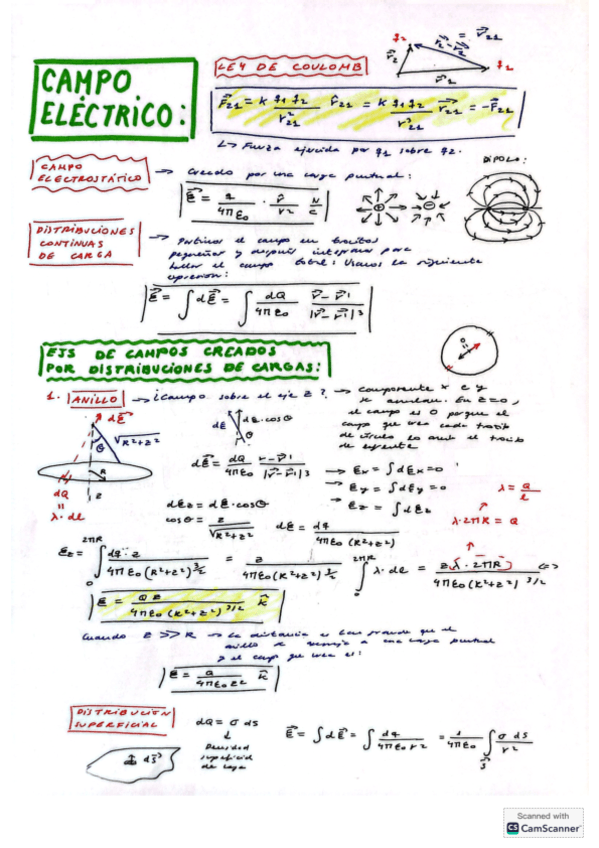 CAMPO
ELÉCTRICO:
LEY DE COULOMB
r⃗₂ - r⃗₁ = r⃗₂₁
q₂
q₁
r⃗₂
r⃗₁
F⃗₂₁ = K q₁q₂/r²₂₁ r̂₂₁ = K q₁q₂/r³₂₁ r⃗₂₁ = -F⃗₂₁
↳ Fuerza ejercida por q₁ sobre q₂.
CAMPO
ELECTROSTÁTICO
→ Creado por una carga puntual:
E⃗ = 1/4πε₀ · r̂/r² N/C
DIPOLO:
DISTRIBUCIONES
CONTINUAS
DE CARGA
→ Partimos el campo en trocitos
pequeños y después integramos para
hallar el campo total: Usamos la siguiente
expresión:
E⃗ = ∫dE⃗ = ∫ dQ/4πε₀ r⃗ - r⃗'/|r⃗ - r⃗'|³
EJS DE CAMPOS CREADOS
POR DISTRIBUCIONES DE CARGAS:
1. ANILLO → ¿Campo sobre el eje z? → Componente x e y
se anulan. En z=0,
el campo es 0 porque el
campo que crea cada trocito
de círculo lo anul el trocito
de enfrente
dE⃗
θ
√R²+z²
R
z
dQ
=
λ·dl
dE
dE·cosθ
dE⃗ = dQ/4πε₀ r - r'/|r⃗ - r⃗'|³
→ Ex = ∫dEx = 0
→ Ey = ∫dEy = 0
→ Ez = ∫dEz
λ = Q/l
λ·2πR = Q
dEz = dE·cosθ
cosθ = z/√R²+z²
dE = dq/4πε₀(R²+z²)
Ez = ∫₀^2πR dq·z/4πε₀(R²+z²)^3/2 = z/4πε₀(R²+z²)^3/2 ∫₀^2πR λ·dl = z(λ·2πR)/4πε₀(R²+z²)^3/2 <=>
E⃗ = Qz/4πε₀(R²+z²)^3/2 k̂
Cuando z >> R → La distancia es tan grande que el
anillo se asemeja a una carga puntual
y el campo que crea es:
E⃗ = Q/4πε₀z² k̂
DISTRIBUCIÓN
SUPERFICIAL
dQ = σ dS
↓
Densidad
superficial
de carga
dS⃗
E⃗ = ∫dE⃗ = ∫ dq/4πε₀r² = 1/4πε₀ ∫ₛ σ dS/r²
Scanned with
CS CamScanner